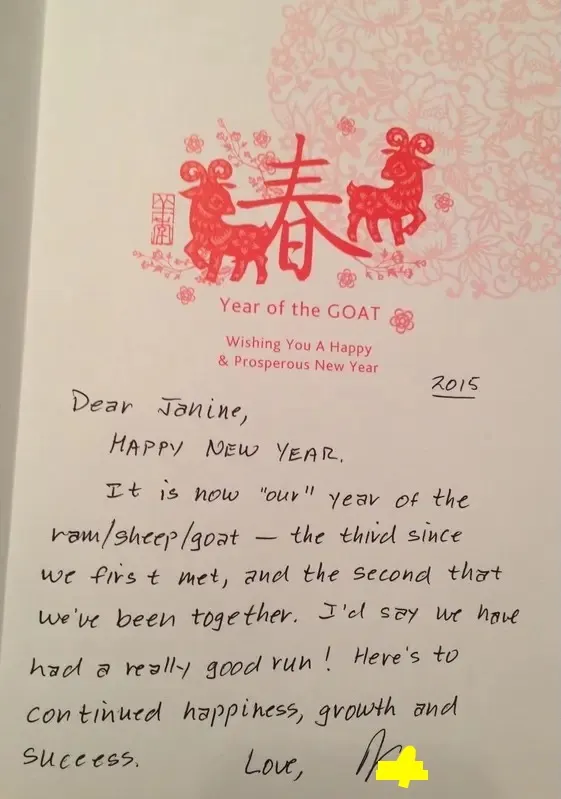 春
Year of the GOAT
Wishing You A Happy
& Prosperous New Year
2015
Dear Janine,
HAPPY NEW YEAR.
It is now "our" year of the
ram/sheep/goat — the third since
we first met, and the second that
we've been together. I'd say we have
had a really good run! Here's to
continued happiness, growth and
success. Love,